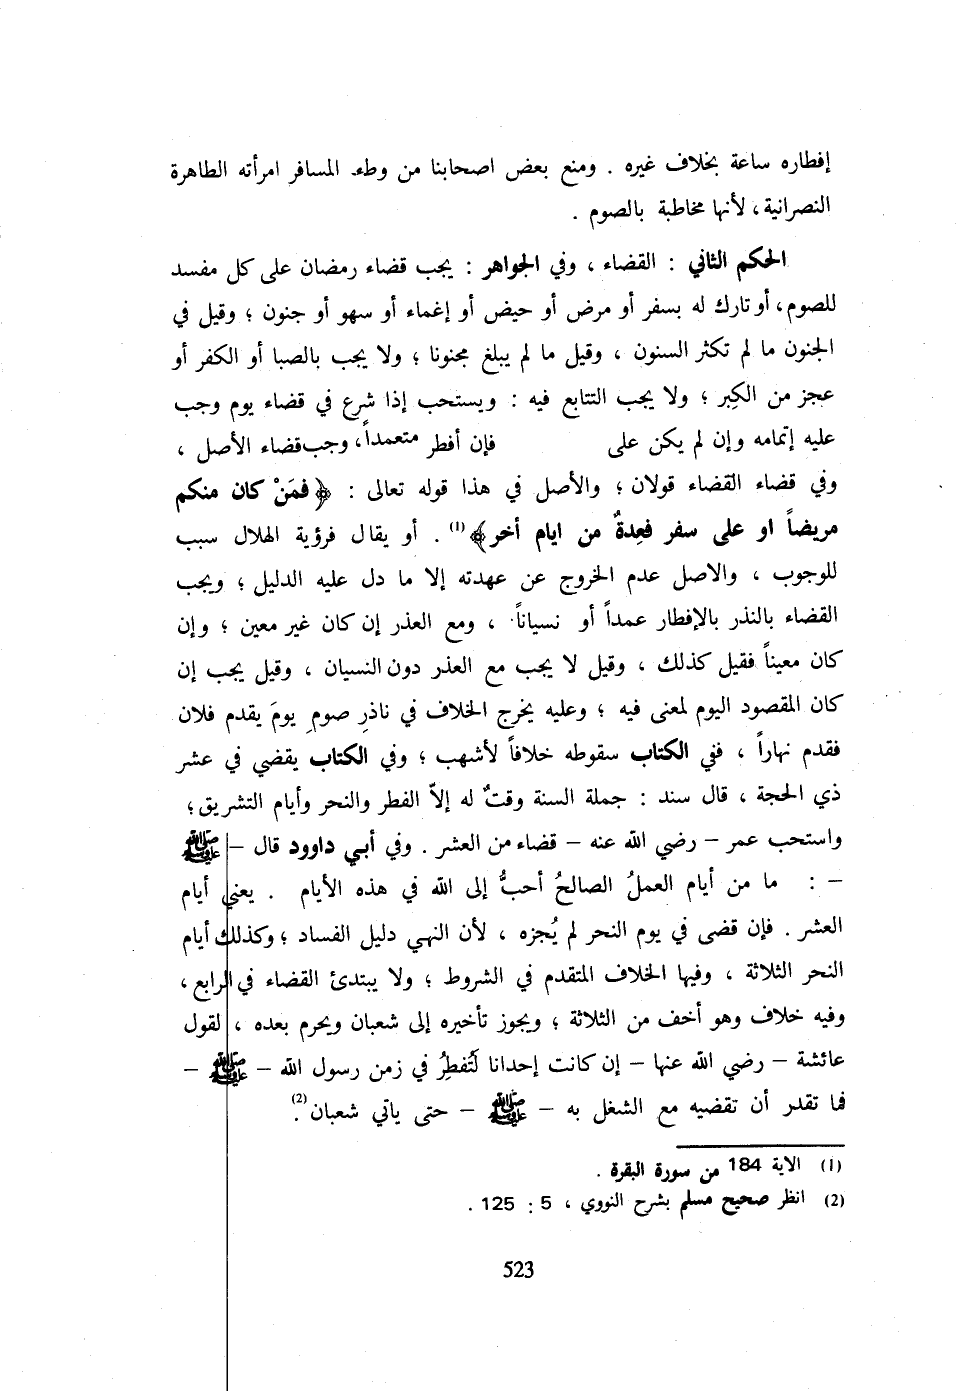 إفطاره ساعة بخلاف غيره . ومنع بعض اصحابنا من وطء المسافر امرأته الطاهرة
النصرانية ، لأنها مخاطبة بالصوم .
الحكم الثاني : القضاء ، وفي الجواهر : يجب قضاء رمضان على كل مفسد
للصوم، أو تارك له بسفر أو مرض أو حيض أو إغماء أو سهو أو جنون ؛ وقيل في
الجنون ما لم تكثر السنون ، وقيل ما لم يبلغ مجنونا ؛ ولا يجب بالصبا أو الكفر أو
عجز من الكِبر ؛ ولا يجب التتابع فيه : ويستحب إذا شرع في قضاء يوم وجب
عليه إتمامه وإن لم يكن على فإن أفطر متعمداً، وجب قضاء الأصل ،
وفي قضاء القضاء قولان ؛ والأصل في هذا قوله تعالى : ﴿ فمَنْ كان منكم
مريضاً او على سفر فعِدةٌ من ايام أخر ﴾ (1) . أو يقال فرؤية الهلال سبب
للوجوب ، والاصل عدم الخروج عن عهدته إلا ما دل عليه الدليل ؛ ويجب
القضاء بالنذر بالإفطار عمداً أو نسياناً ، ومع العذر إن كان غير معين ؛ وإن
كان معيناً فقيل كذلك ، وقيل لا يجب مع العذر دون النسيان ، وقيل يجب إن
كان المقصود اليوم لمعنى فيه ؛ وعليه يخرج الخلاف في ناذرِ صومِ يومَ يقدم فلان
فقدم نهاراً ، ففي الكتاب سقوطه خلافاً لأشهب ؛ وفي الكتاب يقضي في عشر
ذي الحجة ، قال سند : جملة السنة وقتٌ له إلاّ الفطر والنحر وأيام التشريق ؛
واستحب عمر – رضي الله عنه – قضاء من العشر . وفي أبي داوود قال – ﷺ
– : ما من أيام العملُ الصالحُ أحبُّ إلى الله في هذه الأيام . يعني أيام
العشر . فإن قضى في يوم النحر لم يُجزه ، لأن النهي دليل الفساد ؛ وكذلك أيام
النحر الثلاثة ، وفيها الخلاف المتقدم في الشروط ؛ ولا يبتدئ القضاء في الرابع ،
وفيه خلاف وهو أخف من الثلاثة ؛ ويجوز تأخيره إلى شعبان ويحرم بعده ، لقول
عائشة – رضي الله عنها – إن كانت إحدانا لَتُفطِرُ في زمن رسول الله – ﷺ –
فما تقدر أن تقضيه مع الشغل به – ﷺ – حتى ياتي شعبان (2) .
(1) الاية 184 من سورة البقرة .
(2) انظر صحيح مسلم بشرح النووي ، 5 : 125 .
523